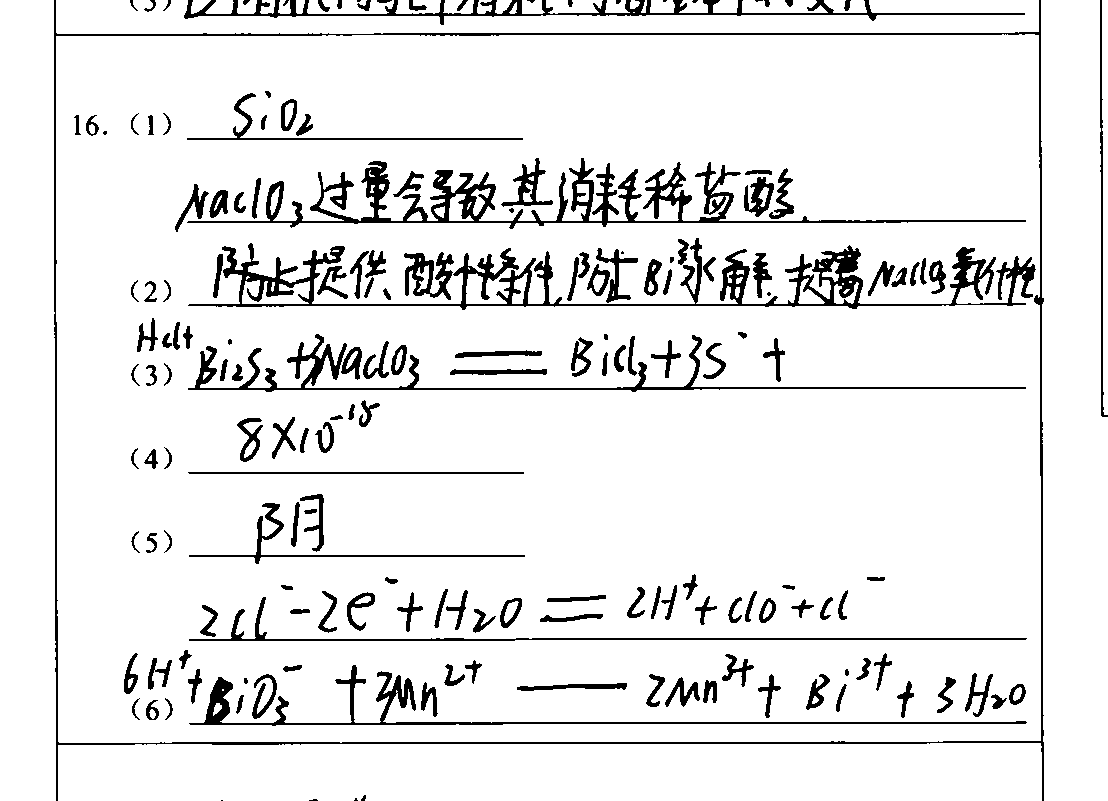 16. (1) SiO₂
NaClO₃过量会导致其消耗稀盐酸.
(2) 防止提供酸性条件,防止Bi水解,提高NaClO₃氧化性。
HCl+
(3) Bi₂S₃+3NaClO₃ == BiCl₃+3S +
(4) 8×10⁻¹⁸
(5) 阴
2Cl⁻-2e⁻+H₂O == 2H⁺+ClO⁻+Cl⁻
6H⁺+
(6) BiO₃⁻ +3Mn²⁺ — 2Mn³⁺+ Bi³⁺+ 3H₂O